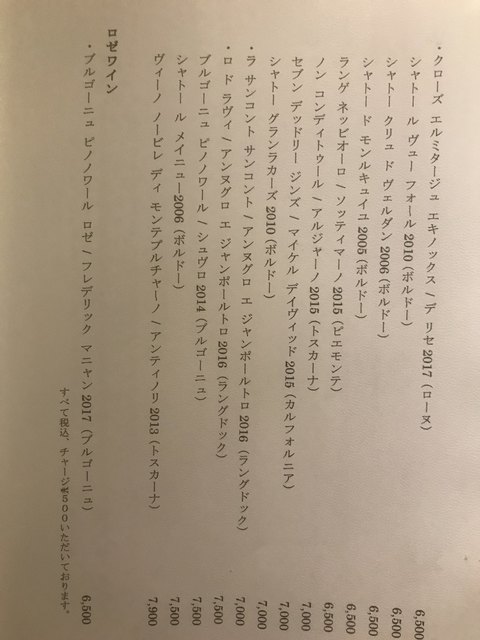 ・クローズ エルミタージュ エキノックス / デ リセ 2017（ローヌ） 6,500
シャトー ル ヴュー フォール 2010（ボルドー） 6,500
シャトー クリュ ド ヴェルダン 2006（ボルドー） 6,500
シャトー ド モンルキュイユ 2005（ボルドー） 6,500
ランゲ ネッビオーロ / ソッティマーノ 2015（ピエモンテ） 6,500
ノン コンディトゥール / アルジャーノ 2015（トスカーナ） 7,000
セブン デッドリー ジンズ / マイケル デイヴィッド 2015（カルフォルニア） 7,000
シャトー グランラカーズ 2010（ボルドー） 7,000
・ラ サンコント サンコント / アンヌグロ エ ジャンポールトロ 2016（ラングドック） 7,000
・ロ ド ラヴィ / アンヌグロ エ ジャンポールトロ 2016（ラングドック） 7,500
ブルゴーニュ ピノノワール / シュヴロ 2014（ブルゴーニュ） 7,500
シャトー ル メイニュー2006（ボルドー） 7,500
ヴィーノ ノービレ ディ モンテプルチャーノ / アンティノリ 2013（トスカーナ） 7,900
ロゼワイン
・ブルゴーニュ ピノノワール ロゼ / フレデリック マニャン 2017（ブルゴーニュ） 6,500
すべて税込、チャージ¥500いただいております。